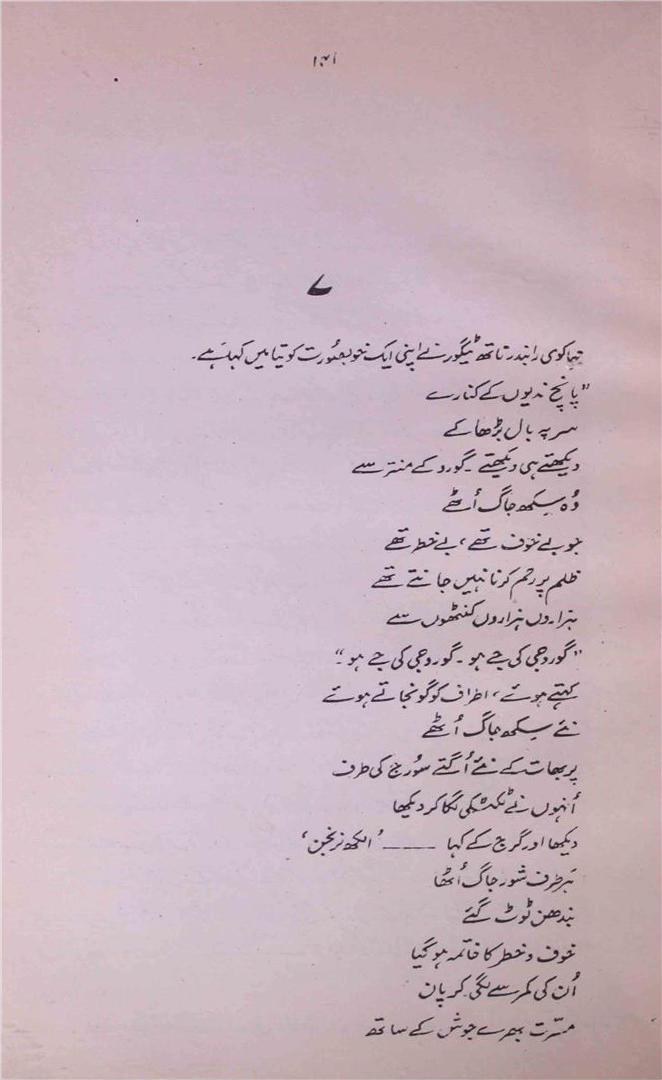 ۱۴۱
۷
مہا کوی رابندر ناتھ ٹیگور نے اپنی ایک خوبصورت کویتا میں کہا ہے۔
"پانچ ندیوں کے کنارے
سر پہ بال بڑھا کے
دیکھتے ہی دیکھتے ۔ گورو کے منتر سے
وُہ سکھ جاگ اُٹھے
جو بے خوف تھے، بے خطر تھے
ظلم پر رحم کرنا نہیں جانتے تھے
ہزاروں ہزاروں کنٹھوں سے
"گورو جی کی جے ہو ۔ گورو جی کی جے ہو ۔"
کہتے ہوئے، اطراف کو گونجاتے ہوئے
نئے سکھ جاگ اُٹھے
پربھات کے نئے اُگتے سُورج کی طرف
اُنہوں نے ٹکٹکی لگا کر دیکھا
دیکھا اور گرج کے کہا ـــــــ 'الکھ نرنجن'
ہر طرف شور جاگ اُٹھا
بندھن ٹوٹ گئے
خوف و خطر کا خاتمہ ہو گیا
اُن کی کمر سے لگی کرپان
مسّرت بھرے جوش کے ساتھ